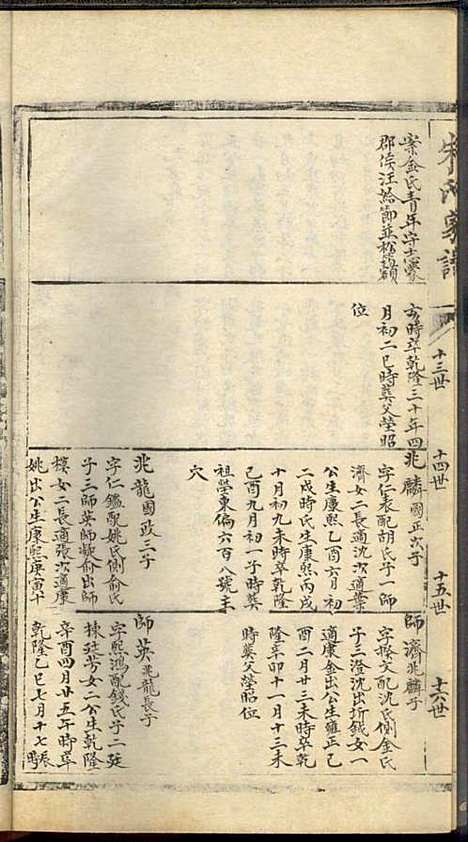 宋氏家譜
十三世
十四世
十五世
十六世
案金氏青年守志蒙
郡侯汪給節並松筠額
亥時卒乾隆三十年四
月初二巳時葬父塋昭
位
兆麟國正次子
字仁表配胡氏子一師
濟女二長適沈次適葉
公生康熙乙酉六月初
二戌時氏生康熙丙戌
十月初九未時卒乾隆
己酉九月初一子時葬
祖塋東偏六百八號主
穴
兆龍國政三子
字仁鑑配姚氏側俞氏
子三師英師 俞出師
樸女二長適張次適康
姚出公生康熙庚寅十
師濟兆麟子
字 文配沈氏側金氏
子三澄沈出折鉞女一
適康金出公生雍正己
酉二月廿三未時卒乾
隆辛卯十一月十三未
時葬父塋昭位
師英兆龍長子
字熙鴻配錢氏子二廷
棟廷芳女二公生乾隆
辛酉四月廿五午時卒
乾隆乙巳七月十七辰時